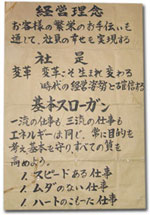 経営理念
お客様の繁栄のお手伝いを
通して、社員の幸せを実現する
社是
変革 変革こそ生まれ変わる
時代の経営姿勢と確信する
基本スローガン
一流の仕事も 三流の仕事も
エネルギーは同じ、常に目的を
考え基本を守り、すべての質を
高めよう。
1. スピードある仕事
1. ムダのない仕事
1. ハートのこもった仕事